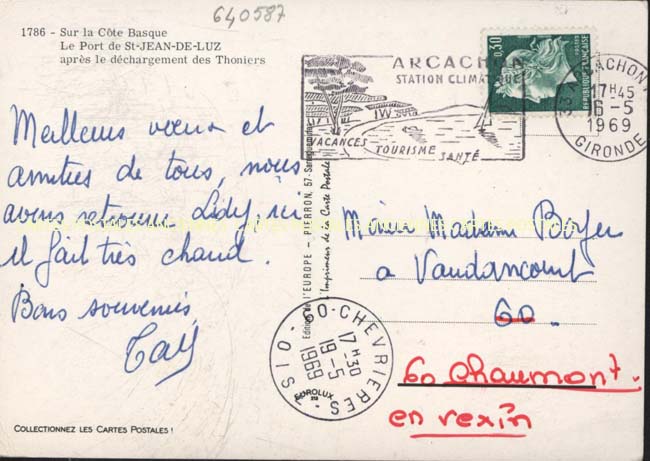 640587
1786 - Sur la Côte Basque
Le Port de St-JEAN-DE-LUZ
après le déchargement des Thoniers
ARCACHON
STATION CLIMATIQUE
VACANCES TOURISME SANTÉ
0,30
REPUBLIQUE FRANÇAISE
ARCACHON
17H45
16-5
1969
GIRONDE
Meilleurs vœux et
amitiés de tous, nous
avons retrouvé Lidy, ici
il fait très chaud.
Bons souvenirs
Editions de l'EUROPE - PIERRON, 57-Sarreguemines
l'Imprimeur de la Carte Postale
Madame Boyer
a Vaudancourt
60.
60-CHEVRIERES
17H30
19-5
1969
OISE
EUROLUX
60 Chaumont.
en vexin
COLLECTIONNEZ LES CARTES POSTALES !